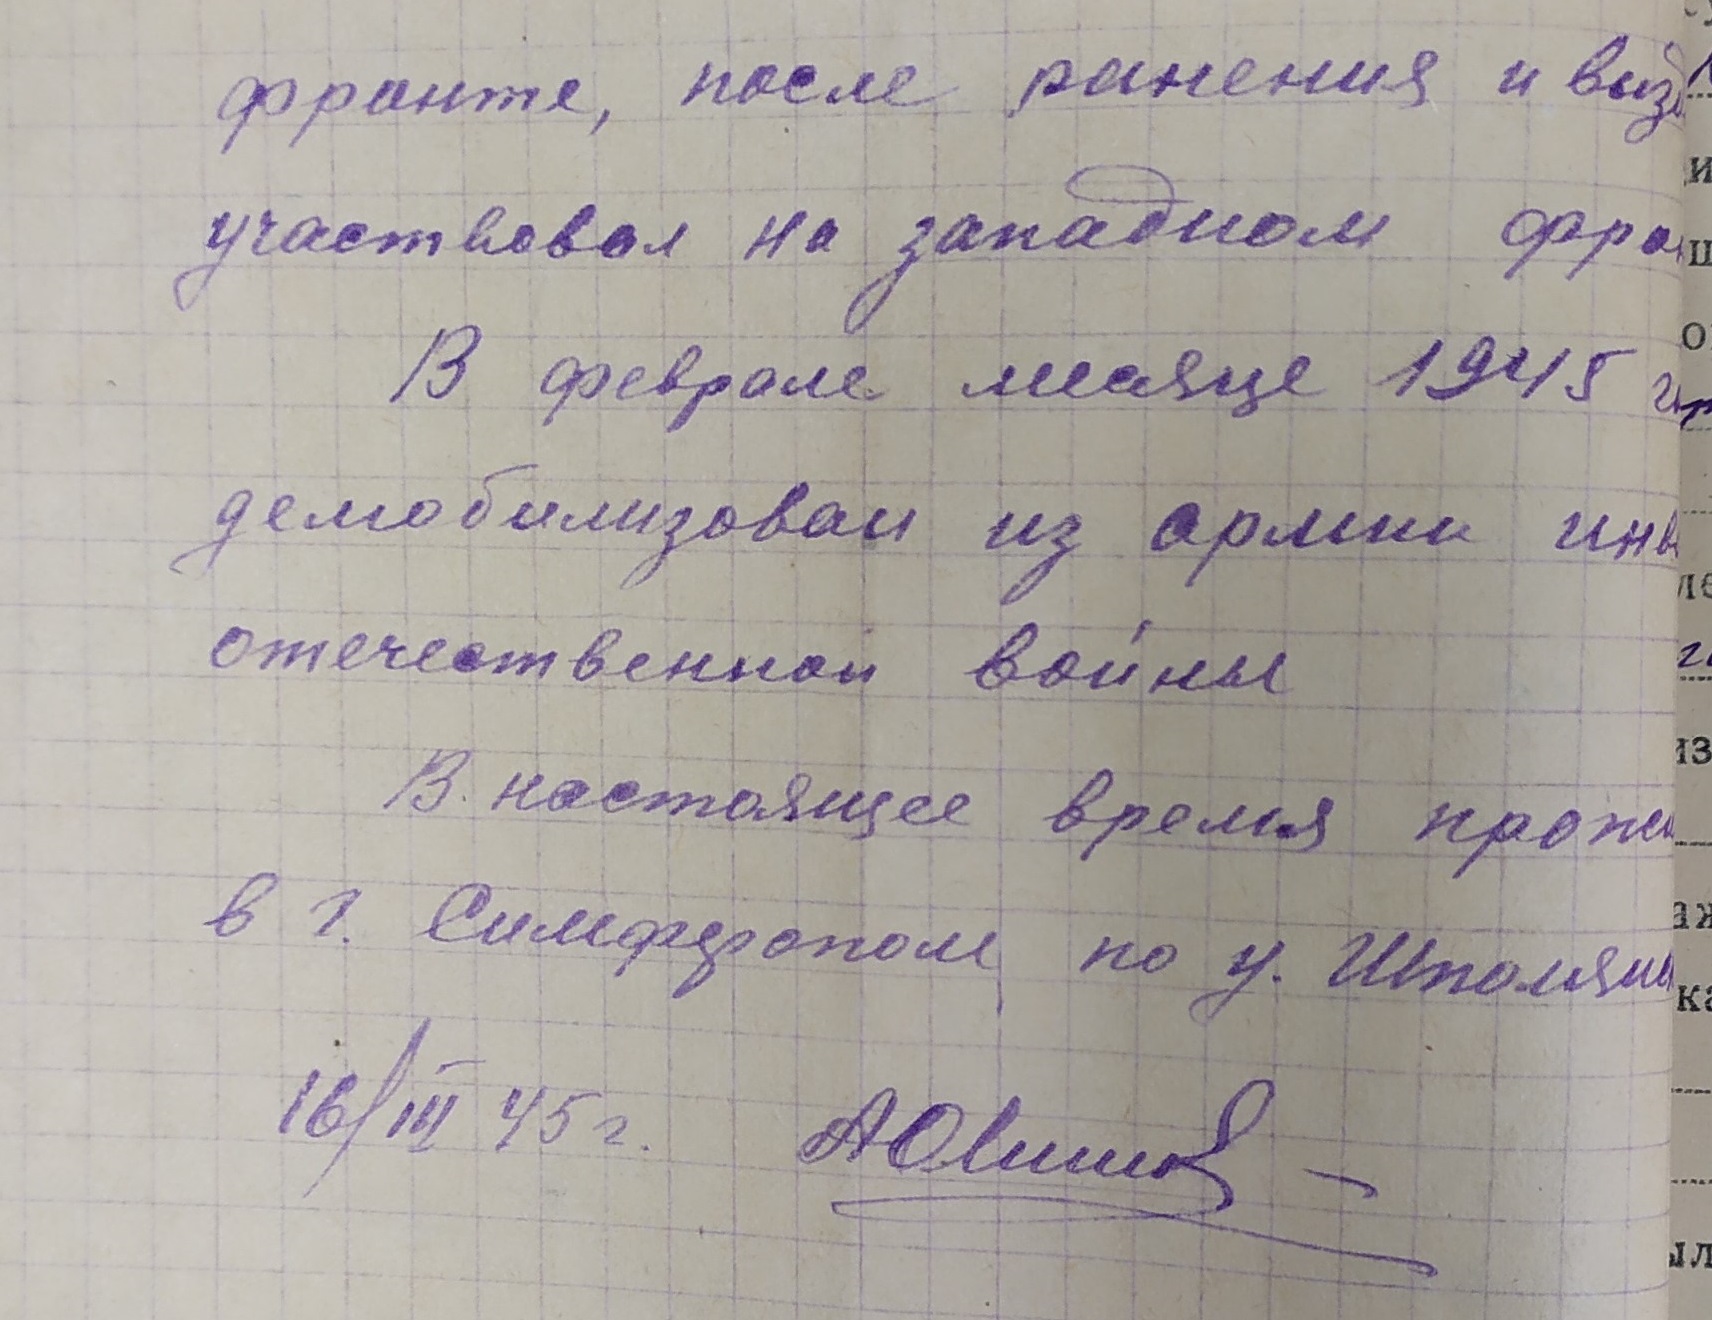 фронте, после ранения и выз
участвовал на западном фрон
В феврале месяце 1945 г.
демобилизован из армии инв
отечественной войны
В настоящее время прожи
в г. Симферополе, по у.
16/III 45 г.